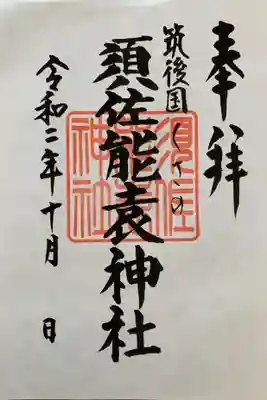 奉拝
筑後国くさの
須佐能袁神社
令和二年十月 日
須佐能袁神社